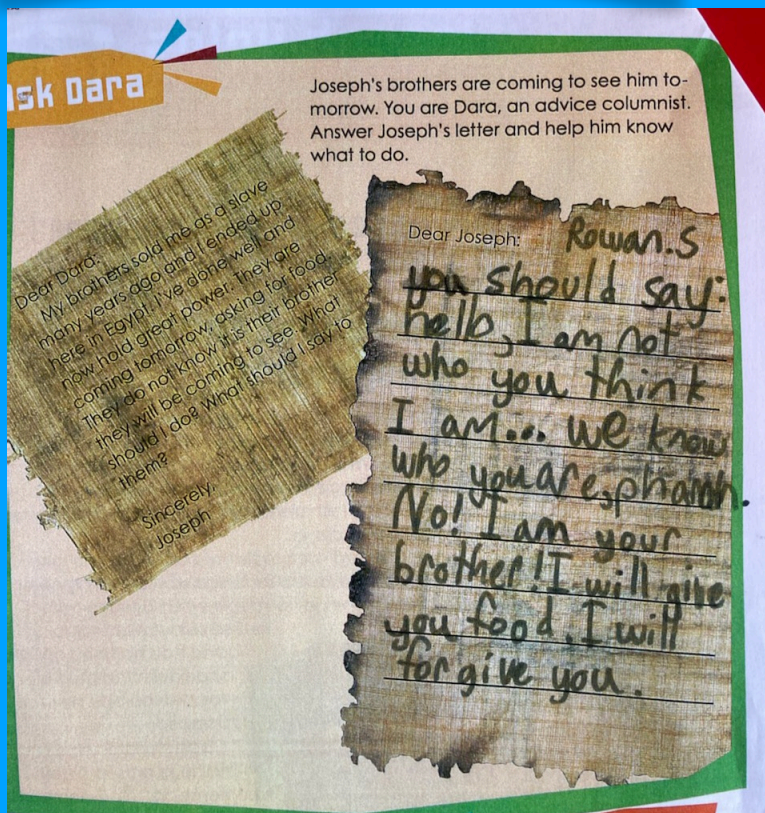 sk Dara
Joseph's brothers are coming to see him to-
morrow. You are Dara, an advice columnist.
Answer Joseph's letter and help him know
what to do.
Dear Dara:
My brothers sold me as a slave
many years ago and I ended up
here in Egypt. I've done well and
now hold great power. They are
coming tomorrow, asking for food.
They do not know it is their brother
they will be coming to see. What
should I do? What should I say to
them?
Sincerely,
Joseph
Dear Joseph: Rowan.S
you should say:
hello, I am not
who you think
I am... we know
who you are, pharoh.
No! I am your
brother! I will give
you food. I will
forgive you.